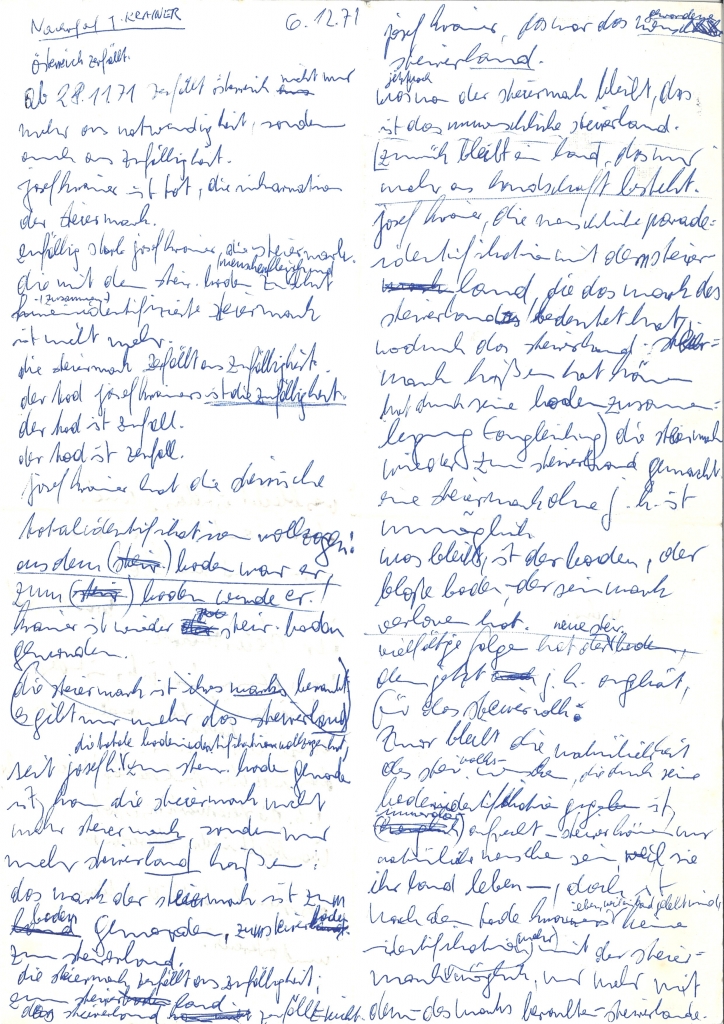 Nachruf J. KRAINER
6.12.71
österreich zerfällt.
ab 28.11.71 zerfällt österreich nicht nur
mehr aus notwendigkeit, sondern
auch aus zufälligkeit.
josef krainer ist tot, die inkarnation
der steiermark.
zufällig starb josef krainer, die steiermark.
die mit dem steir. boden zuletzt
(menschgewordene)
(zusammen)
identifizierte steiermark
ist nicht mehr.
die steiermark zerfällt aus zufälligkeit.
der tod josef krainers ist die zufälligkeit.
der tod ist zufall.
der tod ist zerfall.
josef krainer hat die steirische
totalidentifikation vollzogen:
aus dem (steir.) boden war er,
zum (steir.) boden wurde er!
krainer ist wieder steir. boden
geworden.
(die steiermark ist ihres marks beraubt)
(es gilt nur mehr das steirerland)
die totale bodenidentifikation vollzogen hat,
seit josef k. zum steir. boden geworden
ist, kann die steiermark nicht
mehr steiermark, sondern nur
mehr steirerland heißen.
das mark der steiermark ist zum
boden geworden, zum steirerboden
zum steirerland.
die steiermark zerfällt aus zufälligkeit;
das steirerland zerfällt nicht.
josef krainer, das war das gewordene
steirerland.
jetzt noch
was von der steiermark bleibt, das
ist das unmenschliche steirerland.
(zurück bleibt ein land, das nur
mehr aus landschaft besteht.
josef krainer, die menschliche parade-
identifikation mit dem steirer
land, die das mark des
steirerlands bedeutet hat,
wodurch das steirerland steier-
mark heißen hat können
hat durch seine bodenzusammen-
legung (angleichung) die steiermark
wieder zum steirerland gemacht.
eine steiermark ohne j. k. ist
unmöglich.
was bleibt, ist der boden, der
bloße boden, der sein mark
verloren hat.
neue steir.
vielfältige folgen hat der boden,
dem jetzt auch j. k. angehört,
für das steirervolk:
zwar bleibt die natürlichkeit
des steir. menschen, die durch seine
bodenidentifikation gegeben ist,
aufrecht – steirer können nur
natürliche menschen sein, weil sie
ihr land leben –, doch ist
nach dem tode krainers keine
identifikation (mehr) mit der steier-
mark möglich, nur mehr mit
dem – des marks beraubten – steirerlande.